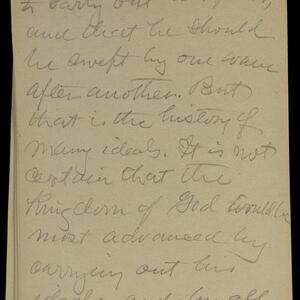 to carry out
and that he should
be swept by one wave
after another. But
that is the history of
many ideals. It is not
certain that the
Kingdom of God would be
most advanced by
carrying out his
ideals and